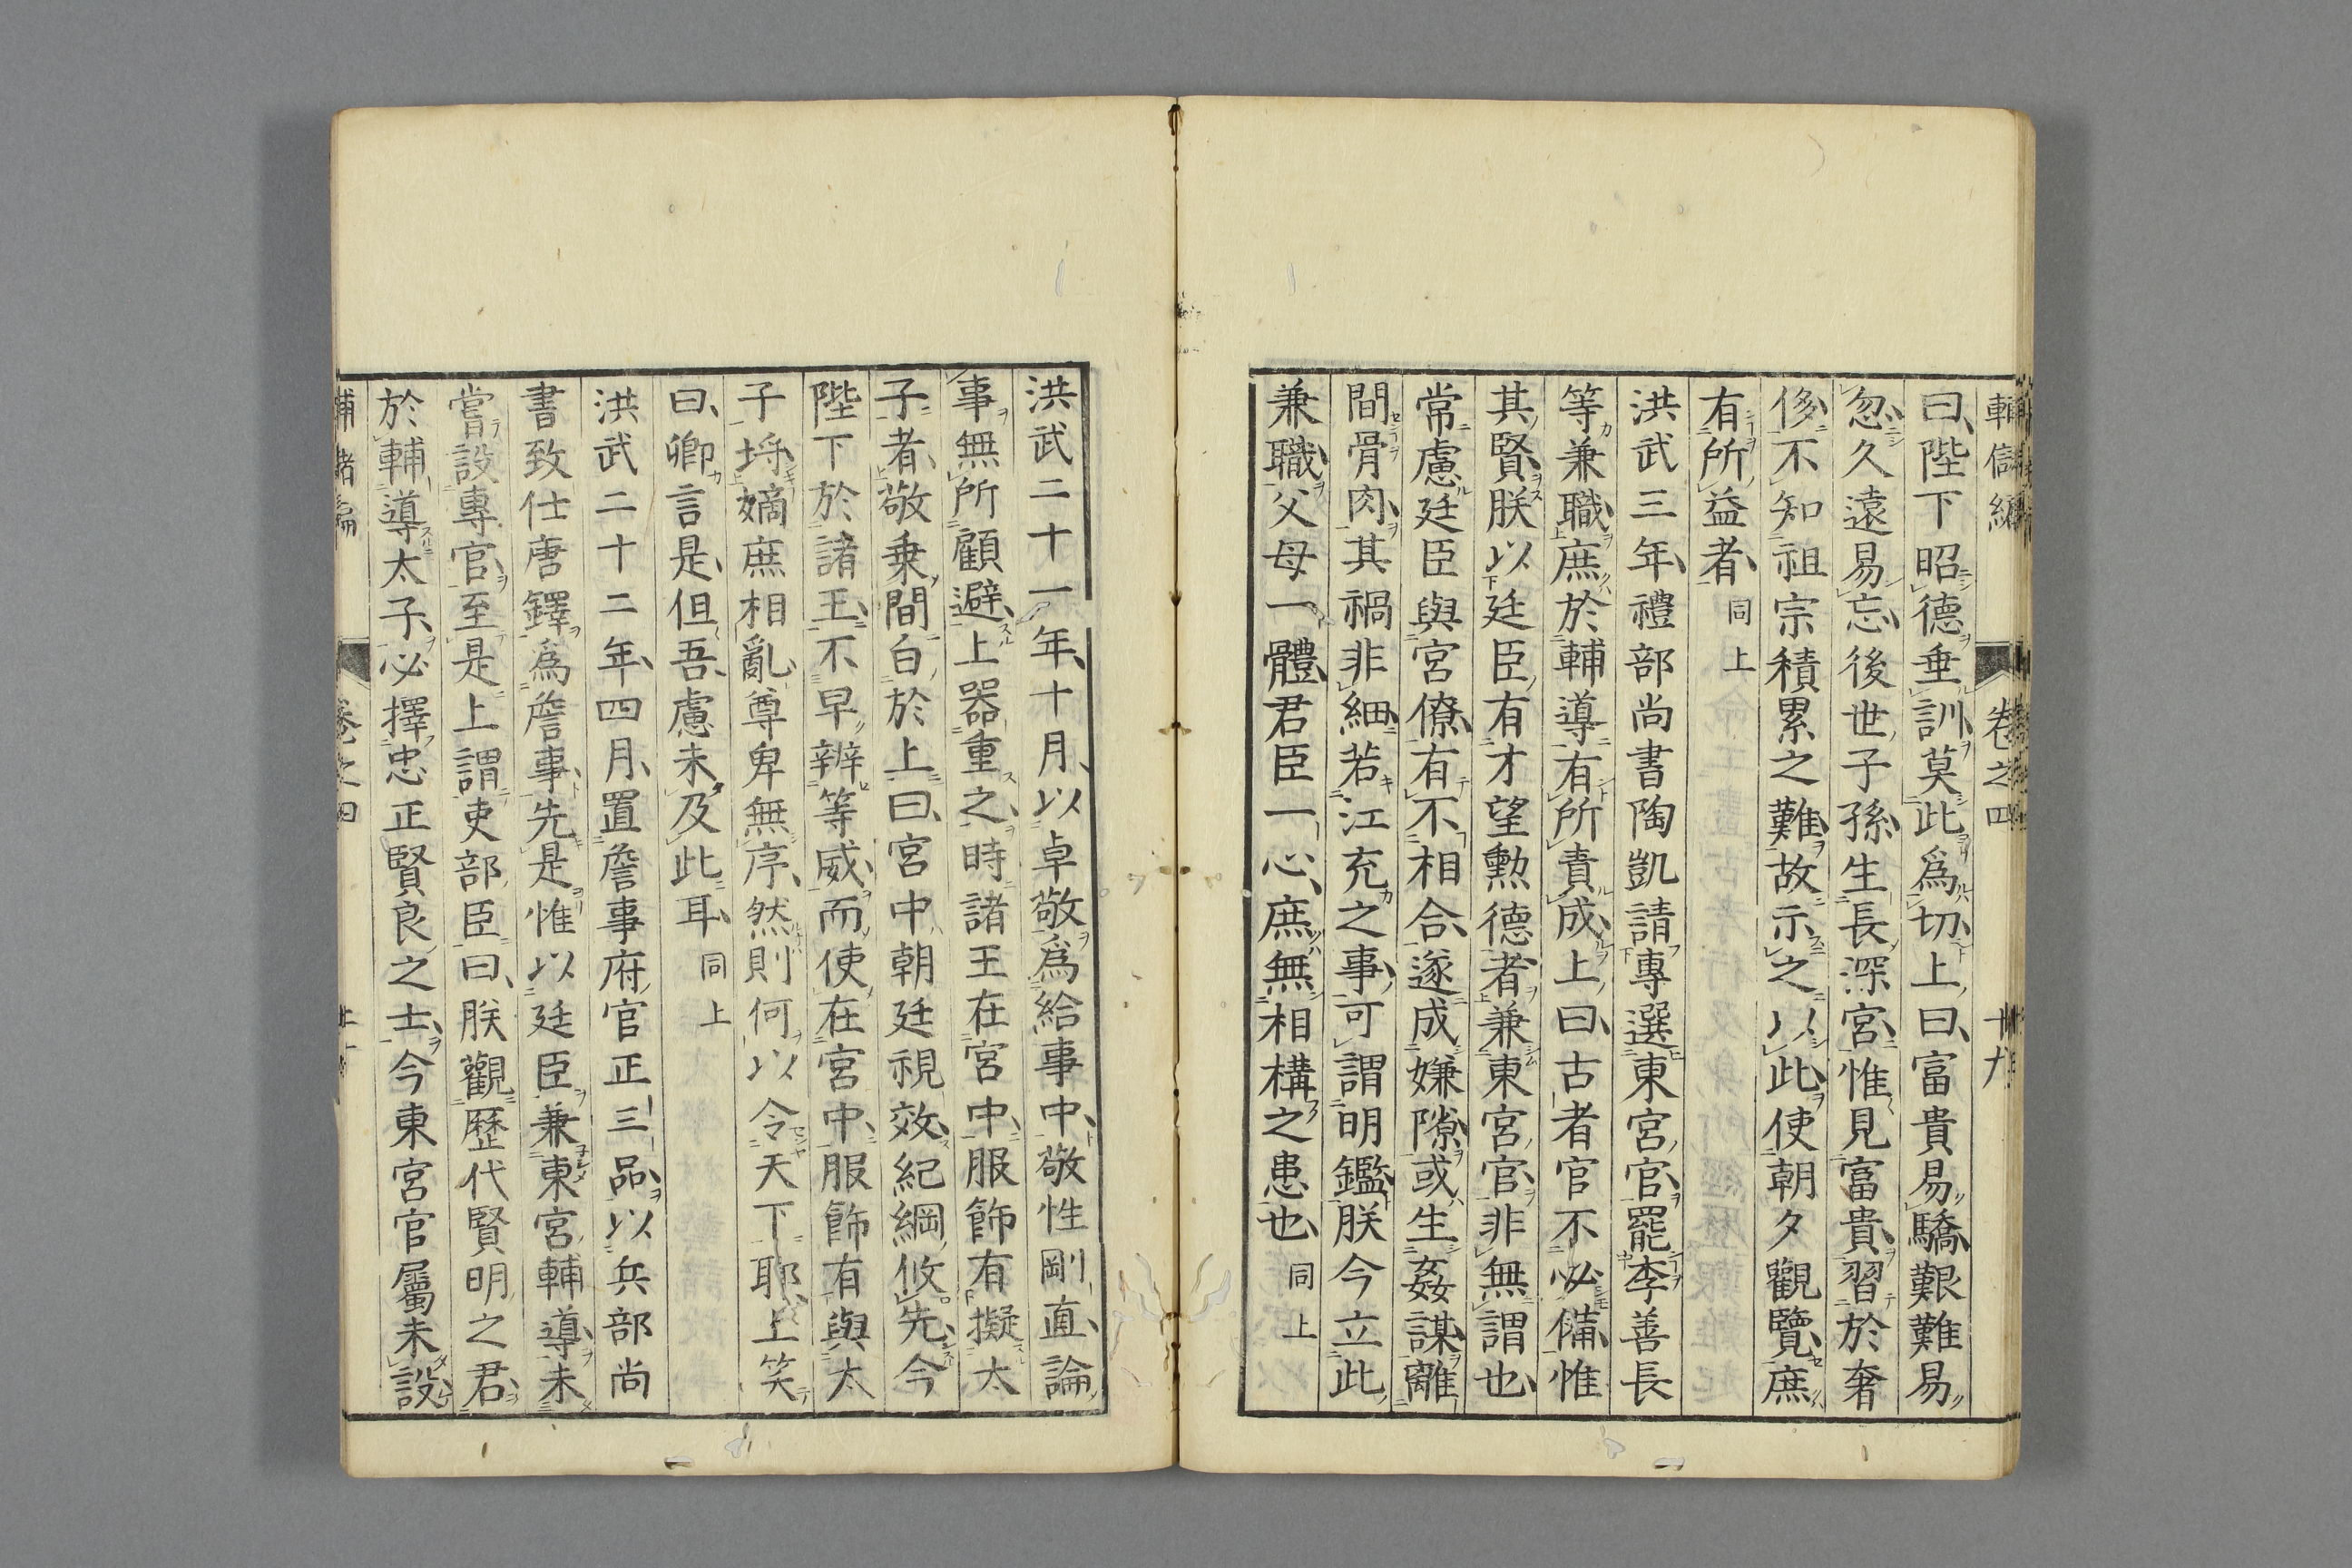 曰陛下昭德垂訓莫此爲切上曰富貴易驕艱難易
忽久遠易忘後世子孫生長深宮惟見富貴習於奢
侈不知祖宗積累之難故示之以此使朝夕觀覽庶
有所益者同上
洪武三年禮部尚書陶凱請專選東宮官罷李善長
等兼職庶於輔導有所責成上曰古者官不必備惟
其賢朕以廷臣有才望勲德者兼東宮官非無謂也
常慮廷臣與宮僚有不相合遂成嫌隙或生姦謀離
間骨肉其禍非細若江充之事可謂明鑑朕今立此
兼職父母一體君臣一心庶無相構之患也同上
洪武二十一年十月以卓敬爲給事中敬性剛直論
事無所顧避上器重之時諸王在宮中服飾有擬太
子者敬乗間白於上曰宮中朝廷視效紀綱攸先今
陛下於諸王不早辨等威而使在宮中服飾有與太
子埒嫡庶相亂尊卑無序然則何以令天下耶上笑
曰卿言是但吾慮未及此耳同上
洪武二十二年四月置詹事府官正三品以兵部尚
書致仕唐鐸爲詹事先是惟以廷臣兼東宮輔導未
嘗設專官至是上謂吏部臣曰朕觀歷代賢明之君
於輔導太子必擇忠正賢良之士今東宮官屬未設
卷之四